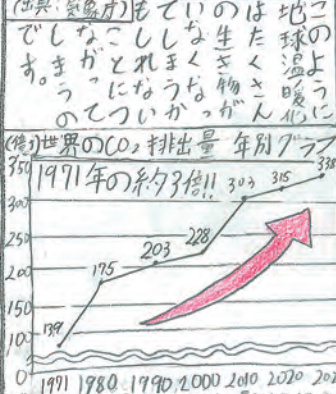 (出典:気象庁)
このように
地球温暖化
はたくさん
の生き物が
いなくなっ
てしまうか
です。
(億t)世界のCO₂排出量 年別グラフ
1971年の約3倍!!
350
300
250
200
150
100
0
139
175
203
228
303
315
338
1971 1980 1990 2000 2010 2020 202